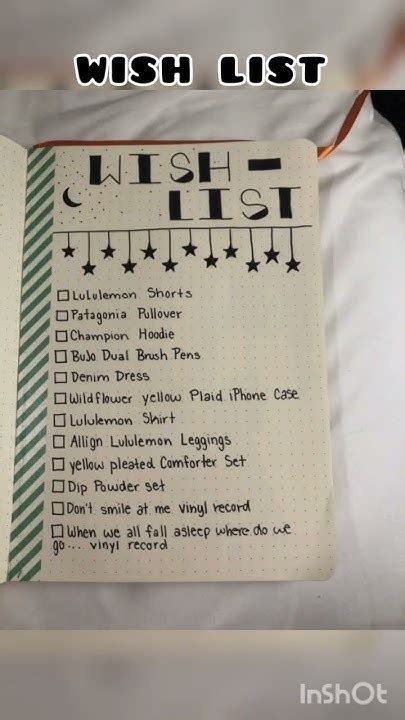 WISH LIST
WISH-
LIST
Lululemon Shorts
Patagonia Pullover
Champion Hoodie
BuJo Dual Brush Pens
Denim Dress
Wildflower yellow Plaid iPhone Case
Lululemon Shirt
Allign Lululemon Leggings
yellow pleated Comforter Set
Dip Powder set
Don't smile at me vinyl record
When we all fall asleep where do we
go... vinyl record
InShOt